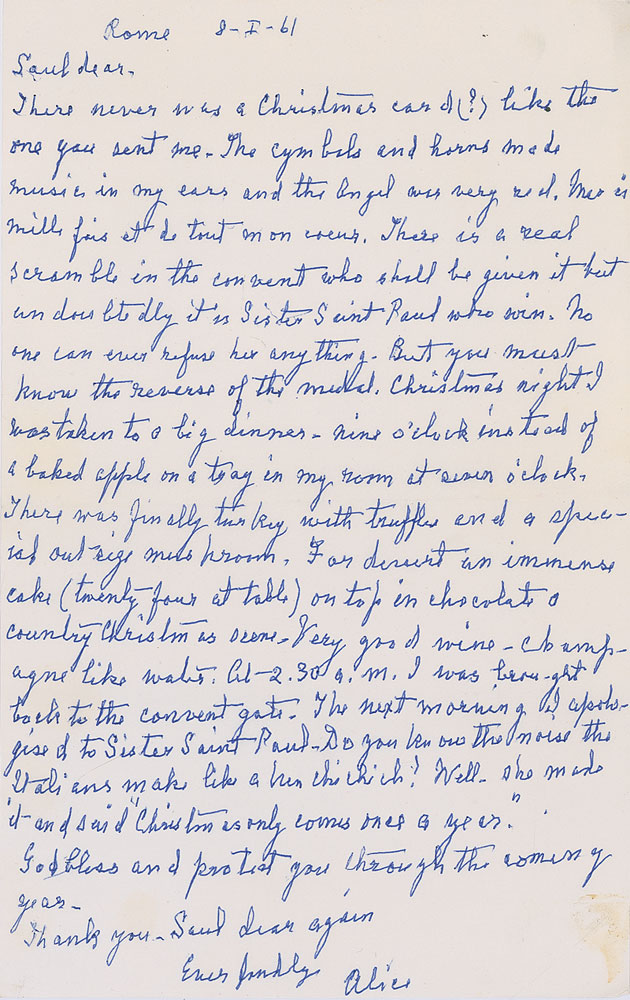 Rome 8-I-61
Saul dear.
There never was a Christmas card (?) like the
one you sent me. The cymbals and horns made
music in my ears and the Angel was very real. Merci
mille fois et de tout mon coeur. There is a real
scramble in the convent who shall be given it but
undoubtedly it is Sister Saint Paul who win. No
one can ever refuse her anything. But you must
know the reverse of the medal. Christmas night I
was taken to a big dinner - nine o'clock instead of
a baked apple on a tray in my room at seven o'clock.
There was finally turkey with truffles and a spec-
ial outsize mushroom. For desert an immense
cake (twenty four at table) on top in chocolate a
country Christmas scene - Very good wine - champ-
agne like water. At 2.30 a.m. I was brou-ght
back to the convent gate. The next morning I apolo-
gised to Sister Saint Paul - Do you know the noise the
Italians make like a hen chichich? Well - she made
it - and said "Christmas only comes once a year."
God bless and protect you through the coming
year -
Thank you - Saul dear again
Ever fondly
Alice